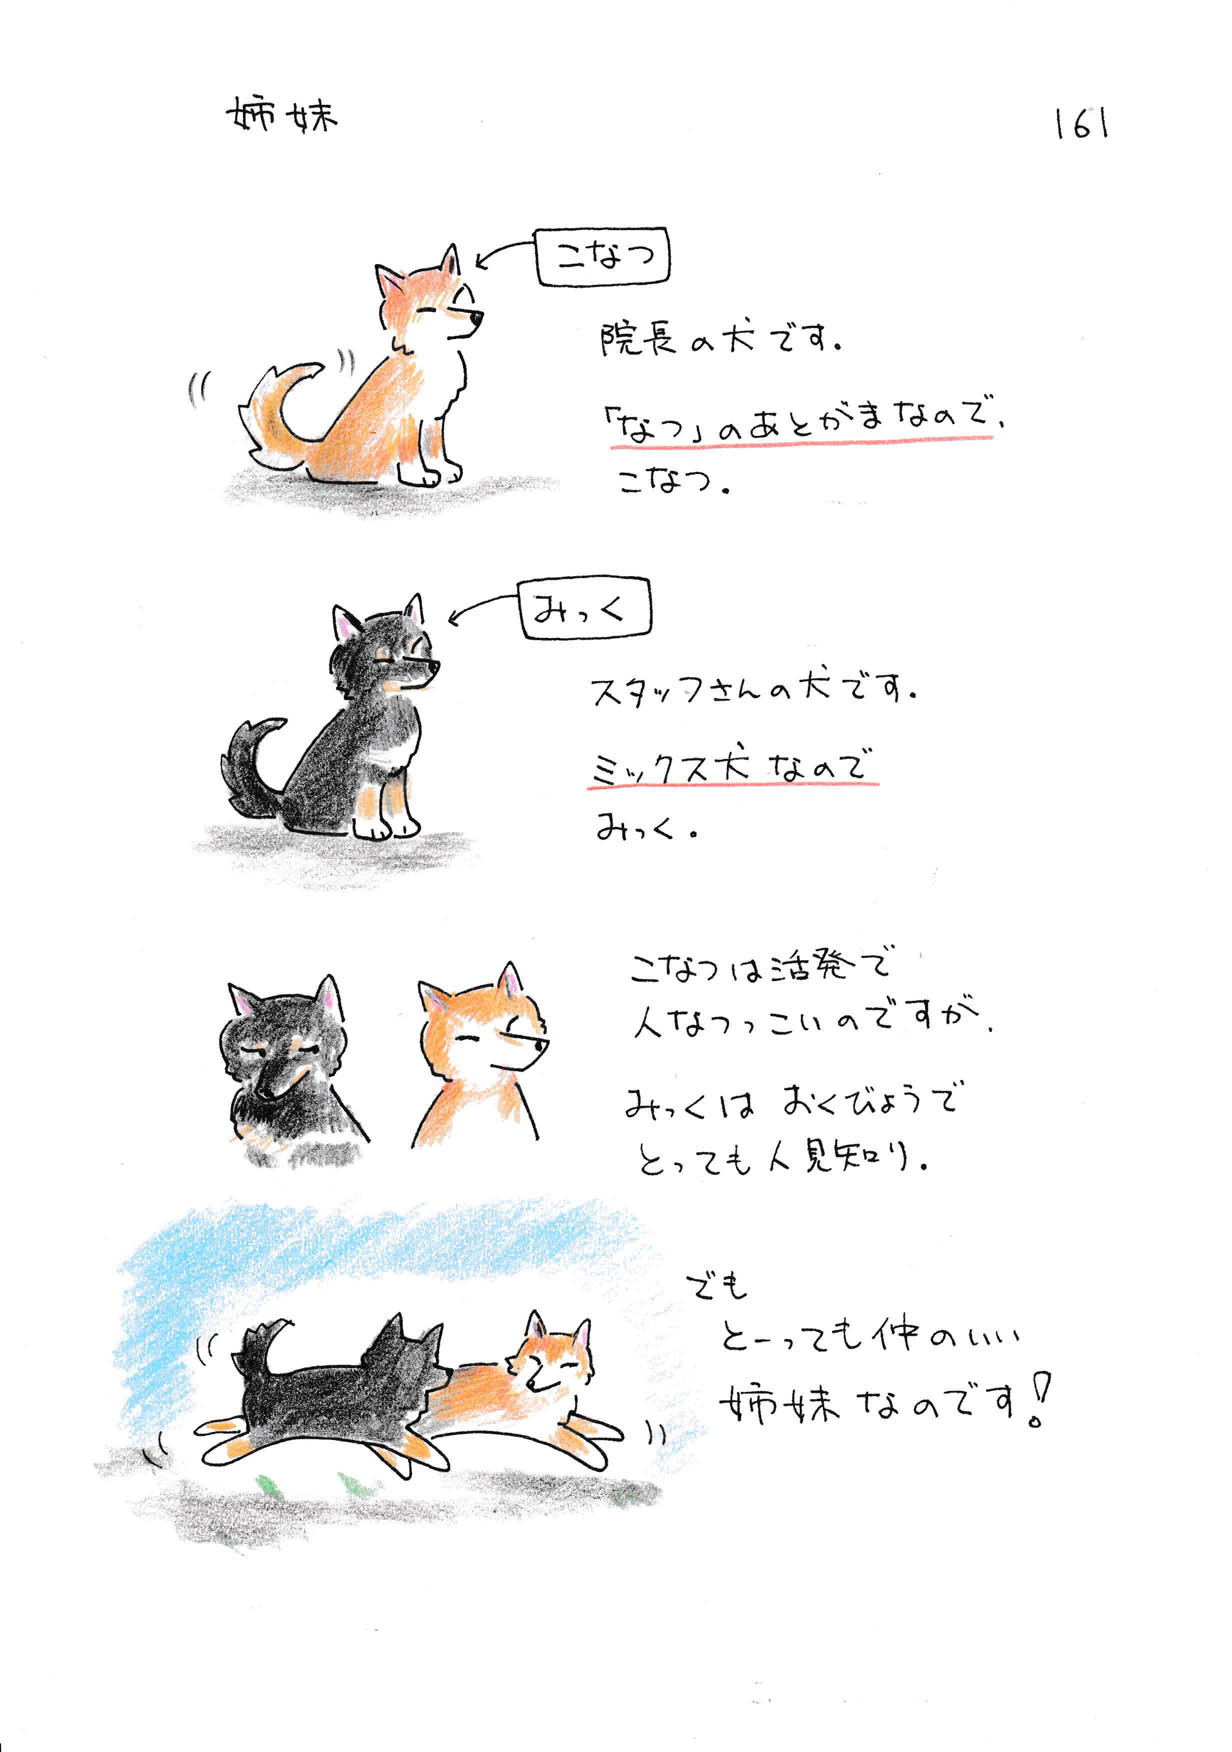 姉妹
161
こなつ
院長の犬です。
「なつ」のあとがまなので、
こなつ。
みっく
スタッフさんの犬です。
ミックス犬なので
みっく。
こなつは活発で
人なつっこいのですが、
みっくはおくびょうで
とっても人見知り。
でも
とーっても仲のいい
姉妹なのです!